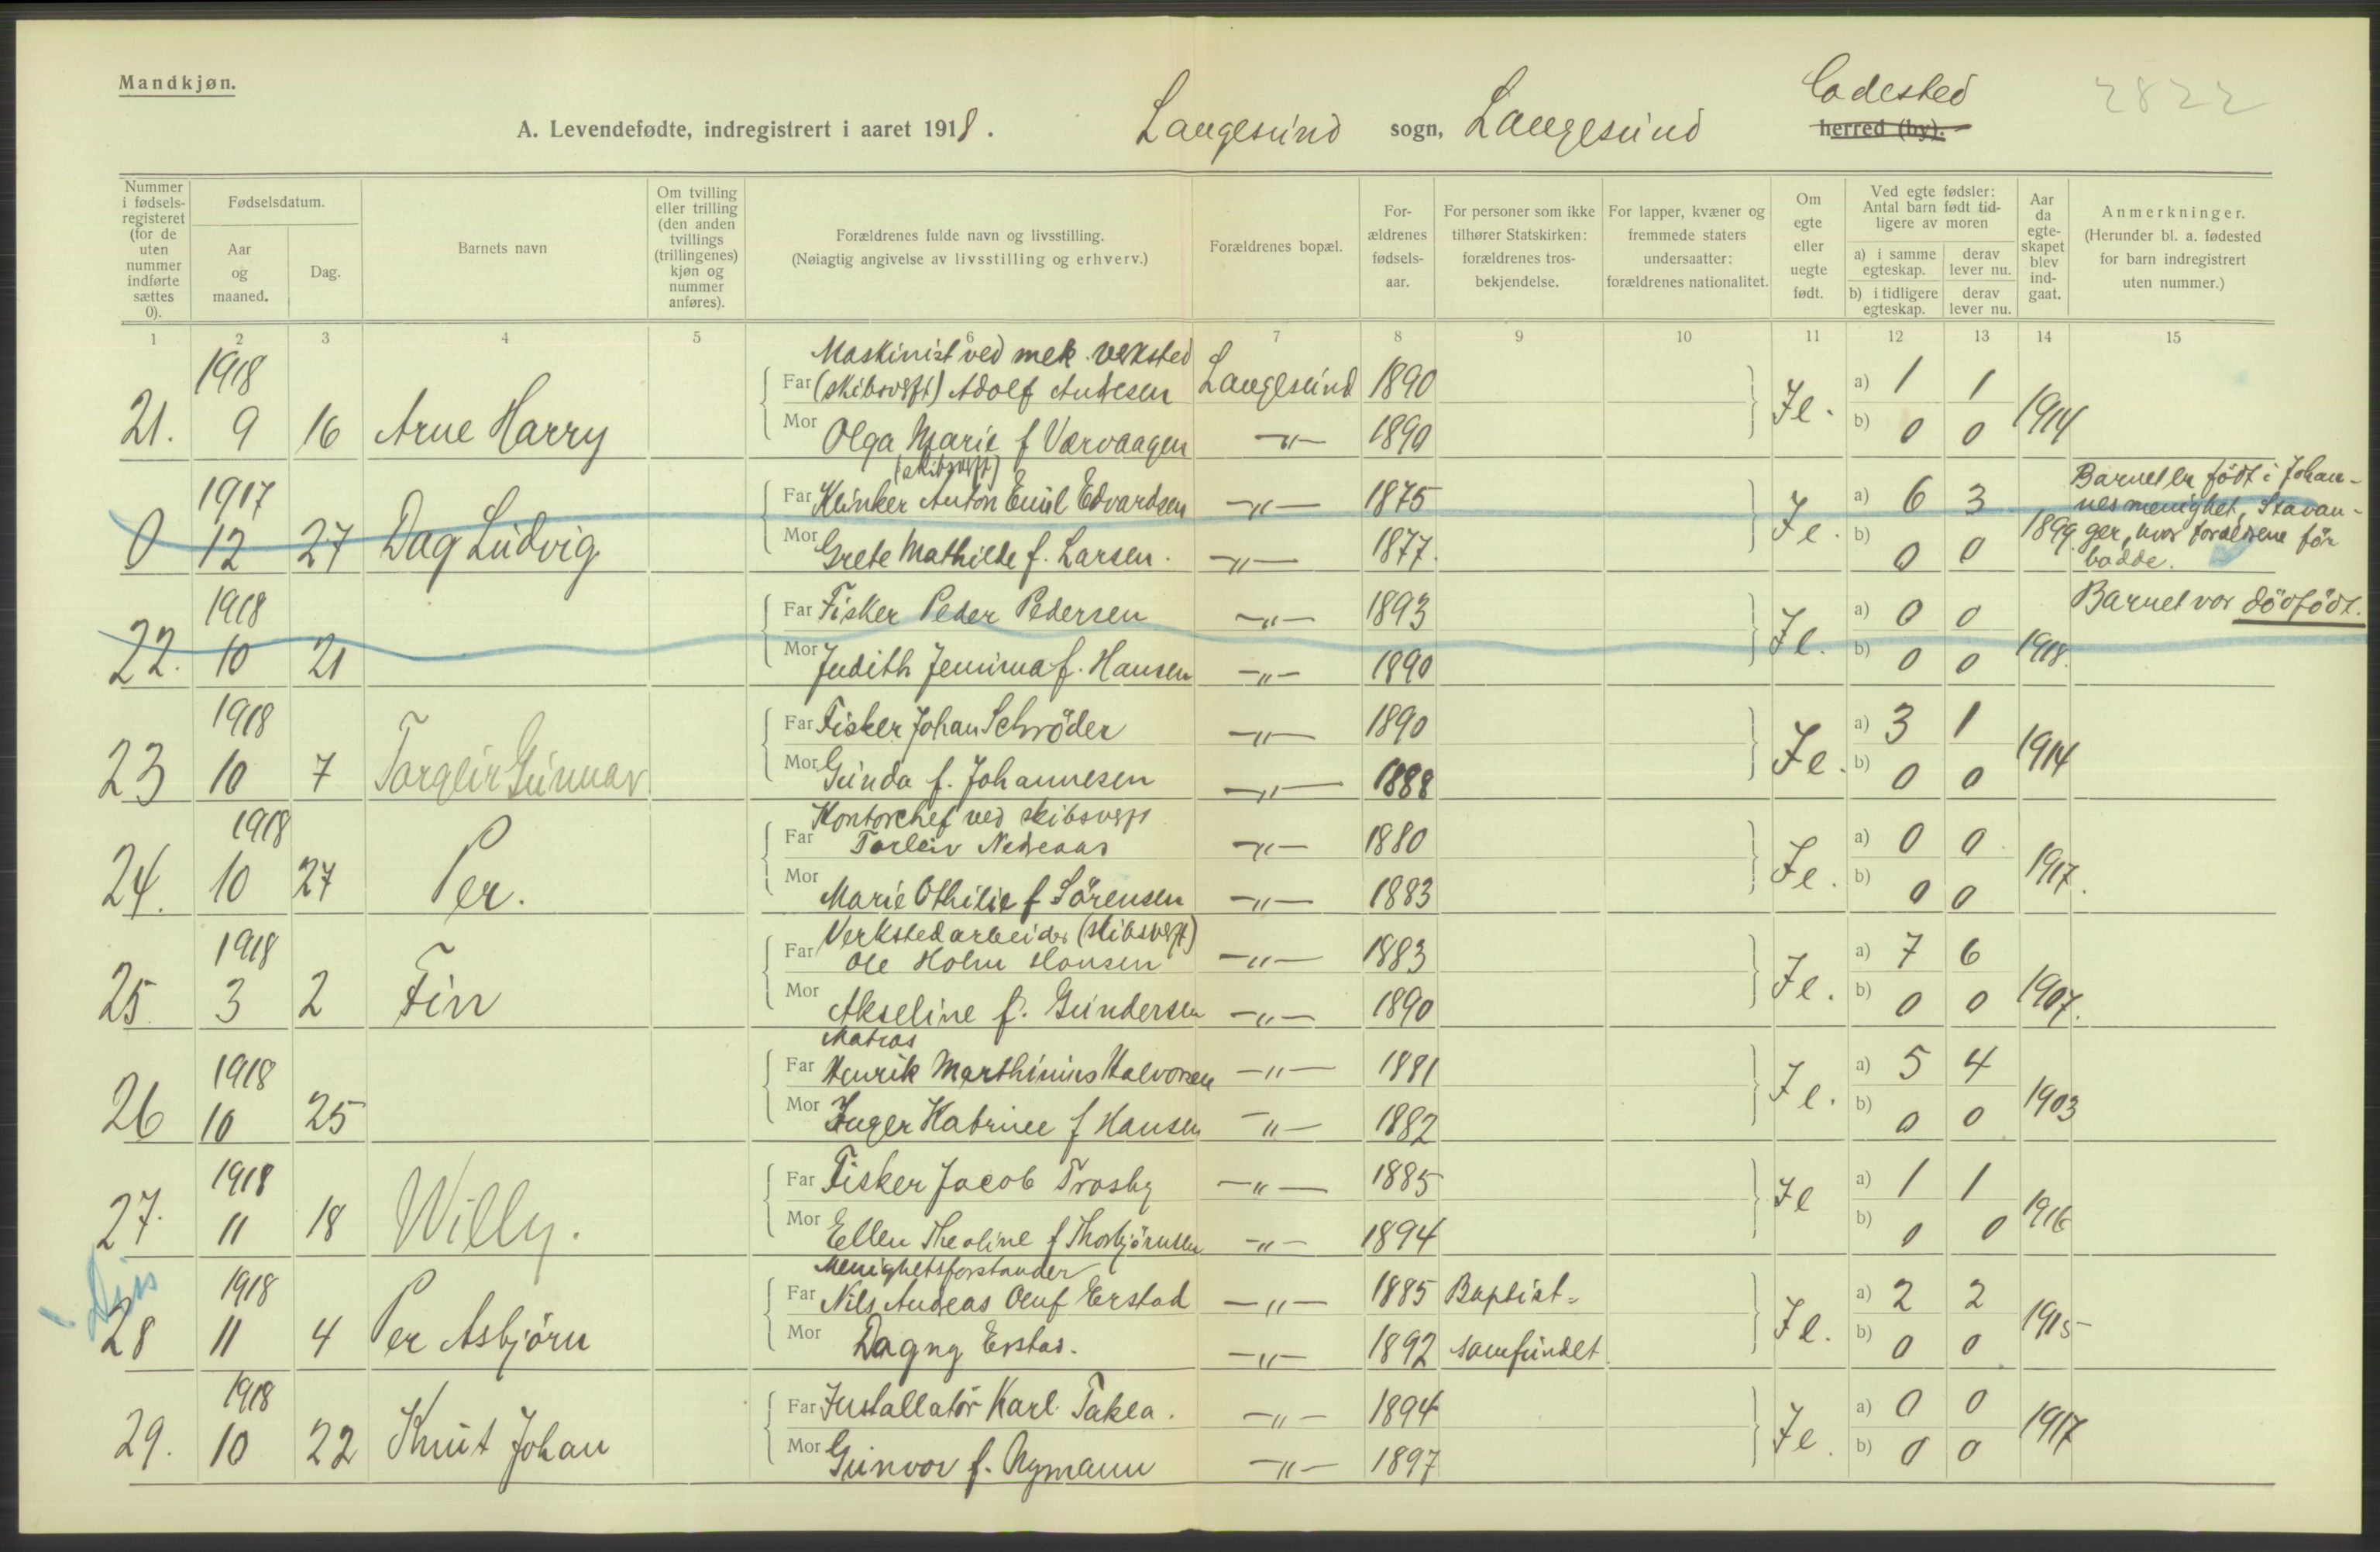 Mandkjøn.
A. Levendefødte, indregistrert i aaret 1918. Langesund sogn, Langesund Ladested herred (by). 2822
Nummer i fødselsregisteret (for de uten nummer indførte sættes 0).
Fødselsdatum.
Aar og maaned.
Dag.
Barnets navn
Om tvilling eller trilling (den anden tvillings (trillingenes) kjøn og nummer anføres).
Forældrenes fulde navn og livsstilling.
(Nøiagtig angivelse av livsstilling og erhverv.)
Forældrenes bopæl.
Forældrenes fødselsaar.
For personer som ikke tilhører Statskirken: forældrenes trosbekjendelse.
For lapper, kvæner og fremmede staters undersaatter: forældrenes nationalitet.
Om egte eller uegte født.
Ved egte fødsler: Antal barn født tidligere av moren
a) i samme egteskap. derav lever nu.
b) i tidligere egteskap. derav lever nu.
Aar da egteskapet blev indgaat.
Anmerkninger.
(Herunder bl. a. fødested for barn indregistrert uten nummer.)
1 2 3 4 5 6 7 8 9 10 11 12 13 14 15
1918 Maskinist ved mek. verksted
Far (skibsverft) Adolf Andresen Langesund 1890 a) 1 1
21. 9 16 Arne Harry Mor Olga Marie f Værvaagen -"- 1890 Je. b) 0 0 1914
(skibsverft)
1917 Far Klinker Anton Emil Edvardsen -"- 1875 a) 6 3 Barnet er födt i Johan-
nesmenighet, Stavan-
0 12 27 Dag Ludvig Mor Grete Mathilde f. Larsen. -"- 1877. Je. b) 0 0 1899. ger, hvor foreldrene før
bodde.
1918 Far Fisker Peder Pedersen -"- 1893 a) 0 0 Barnet var dödfödt.
22. 10 21 Mor Judith Jemima f. Hansen -"- 1890 Je. b) 0 0 1918.
1918 Far Fisker Johan Schröder -"- 1890 a) 3 1
23 10 7 Torgeir Gunnar Mor Gunda f. Johannesen -"- 1888 Je. b) 0 0 1914
1918 Kontorchef ved skibsverft
Far Torleiv Nedreaas -"- 1880 a) 0 0
24. 10 27 Per. Mor Marie Othilie f Sörensen -"- 1883 Je. b) 0 0 1917.
1918 Verkstedarbeider (skibsverft)
Far Ole Holm Hansen -"- 1883 a) 7 6
25. 3 2 Finn Mor Akseline f. Gundersen -"- 1890 Je. b) 0 0 1907.
Matros
1918 Far Henrik Marthinius Halvorsen -"- 1881 a) 5 4
26 10 25 Mor Inger Katrine f Hansen -"- 1882 Je. b) 0 0 1903
1918 Far Fisker Jacob Trosby -"- 1885 a) 1 1
27. 11 18 Willy. Mor Ellen Theoline f Thorbjörnsen -"- 1894 Je b) 0 0 1916
Menighetsforstander
1918 Far Nils Andreas Oluf Erstad -"- 1885 Baptist- a) 2 2
28 11 4 Per Asbjörn Mor Dagny Erstad. -"- 1892 samfundet Je. b) 0 0 1915
1918 Far Installatör Karl Takla. -"- 1894 a) 0 0
29. 10 22 Knut Johan Mor Gunvor f. Nymann -"- 1897 Je. b) 0 0 1917